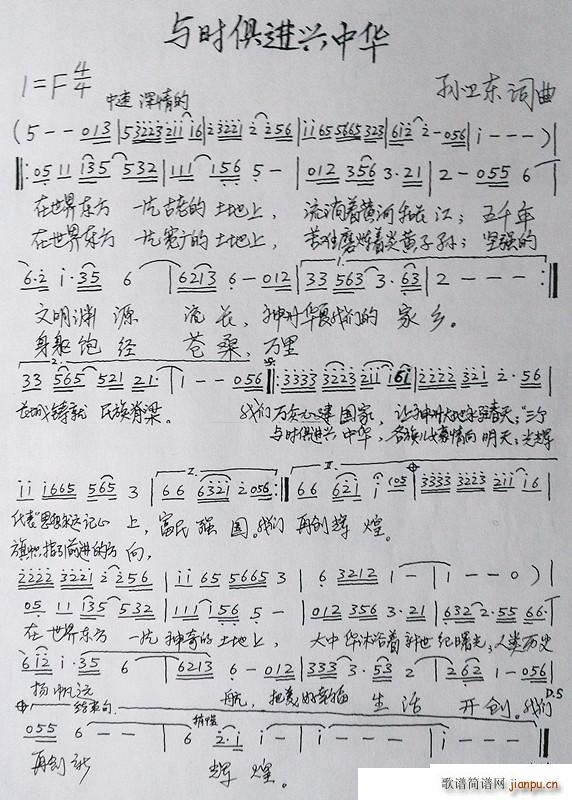 与时俱进兴中华
1=F 4/4 中速 深情的
孙卫东 词曲
(5 - - 013 | 53223 2116 | 23221 2 256 | 1165 5665 323 | 612 2-056 | 1 - - - )|
‖: 05 11 135 532 | 111 156 5 - | 012 356 3·21 | 2-055 6
在世界东方 一片古老的土地上, 流淌着黄河和长江; 五千年
在世界东方 一片宽广的土地上, 苦难磨炼着炎黄子孙; 坚强的
6·2 1·35 6 | 6213 6-012 | 33 563 3·63 | 2 - - - :‖
文明渊源 流长, 神州华夏我们的 家乡。
身躯饱经 苍桑, 万里
2.
33 565 521 21· | 1 - - 056 ‖: 3333 3223 211 161 | 2222 321 2·56 |
长城铸就 民族脊梁。 我们万众 建国家, 让神州大地 春天; "三个
与时俱进兴中华, 各族儿女豪情向明天; 光辉
11 1665 565 3 | 66 6321 2056 :‖ 66 621 1 (05 | 3333 3223 211 16 |
代表"思想永远记心上, 富民强国。我们 再创辉煌。
旗帜指引前进的方向,
2222 3221 2 256 | 11 65 5665 3 | 6 3212 1 - | 1 - - 0 )|
05 11 135 532 | 111 156 5 - | 012 356 3·21 | 632 2·55 66·
在世界东方 一片神奇的土地上, 大中华沐浴着新世纪曙光, 人类历史
612 1·35 6 | 6213 6-012 | 333 3·53 2 | 262 1-056
扬帆远 航, 把美好幸福 生活 开创。我们
D.S
结束句
055 6 - - | 6 2·1 1 - | 1 - - - | 1 - - -
再创新 辉煌。
歌谱简谱网
jianpu.cn